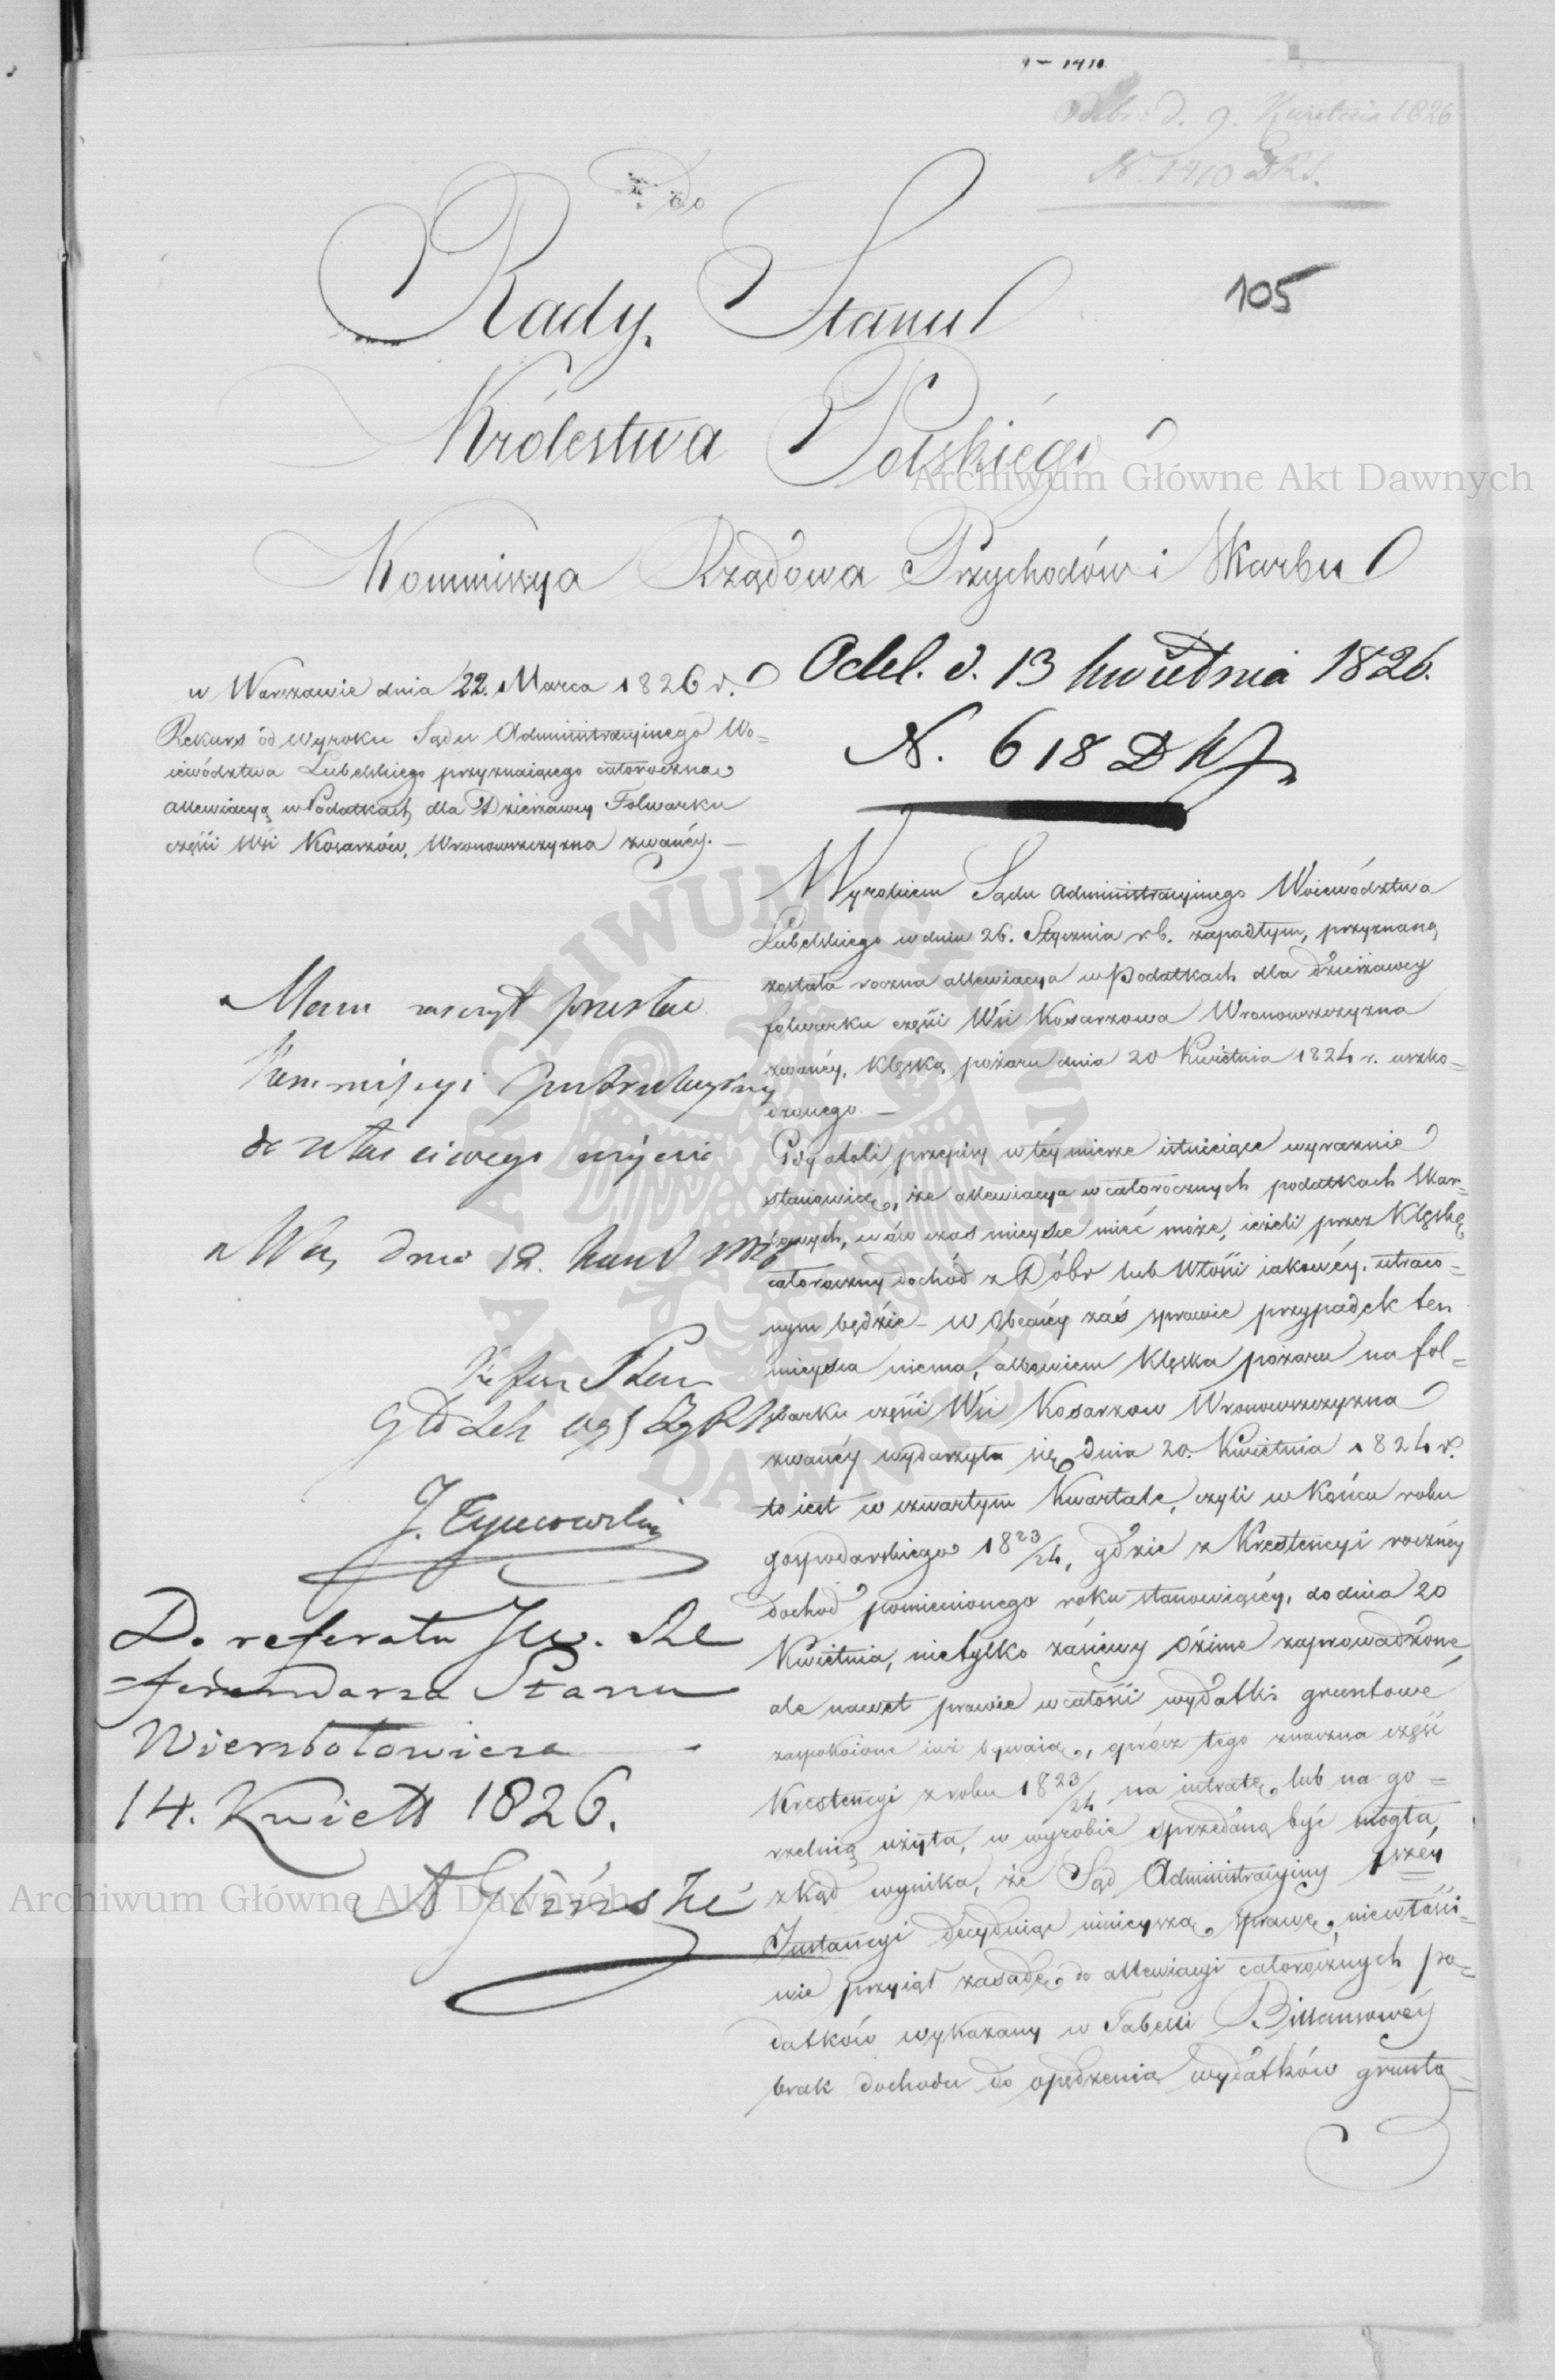 1410
Odebr: d. 9. Kwietnia 1826
N. 1410 DKS.
Do
Rady Stanu
105
Królestwa Polskiégo
Archiwum Główne Akt Dawnych
Kommissya Rządowa Przychodów i Skarbu
w Warszawie dnia 22. Marca 1826 r.
Rekurs od Wyroku Sądu Administracyinego Wo=
iewództwa Lubelskiego przyznaiącego całoroczną
allewiacyą w Podatkach dla Dzierżawcy Folwarku
części Wsi Kosarzów, Wronowszczyzna zwanéy. —
Odel. d. 13 kwietnia 1826.
N. 618 DKS
Wyrokiem Sądu Administracyinego Woiewództwa
Lubelskiego w dniu 26. Stycznia r.b. zapadłym, przyznaną
została roczna allewiacya w Podatkach dla dzierżawcy
folwarku części Wsi Kosarzowa Wronowszczyzna
zwanéy, Klęską pożaru dnia 20 Kwietnia 1824 r. uszko=
dzonego. —
Gdy atoli przepisy w téy mierze istnieiące wyraznie
stanowią, iże allewiacya w całorocznych podatkach Skar=
bowych, w ów czas mieysce mieć może, ieżeli przez Klęskę
całoroczny dochód z Dóbr lub Włości iakowéy, utraco=
nym będzie — w obecnéy zaś sprawie przypadek ten
mieysca niema, albowiem Klęska pożaru na fol=
warku części Wsi Kosarzow Wronowszczyzna
zwanéy wydarzyła się dnia 20. Kwietnia 1824 r.
to iest w czwartym Kwartale, czyli w Końcu roku
gospodarskiego 1823/24, gdzie z Krestencyi rocznéy
dochod pomienionego roku stanowiącéy, do dnia 20
Kwietnia, nietylko zásiewy Ozime zaprowadzone,
ale nawet prawie w całości wydatki gruntowe
zaspokoione iuż bywaią, oprócz tego znaczna część
Krestencyi z roku 1823/24 na intratę lub na go=
rzelnią użyta, w wyrobie sprzedaną być mogła,
zkąd wynika, że Sąd Administracyiny 1széy
Instancyi decyduiąc ninieyszą sprawę, niewłaści=
wie przyiął zasadę do allewiacyi całorocznych po=
datków wykazany w Tabelli Billansowéy
brak dochodu do opędzenia wydatków grunto=
Mam zaszczyt przesłać
Kommissyi
do właściwego użycia
Dnia 12.
J. Tymowski
Do referatu JW. Re
=ferendarza Stanu
Wierzbołowicza
14. Kwiett 1826.
A Gliński
Archiwum Główne Akt Dawnych
ARCHIWUM GŁÓWNE
AKT DAWNYCH